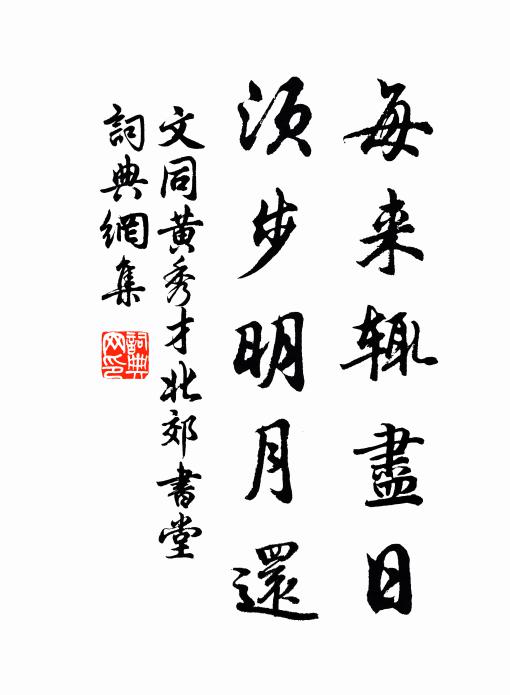 每来辄盡日
須步明月還
文同黄秀才北郊書堂
詞典網集
詞典網印